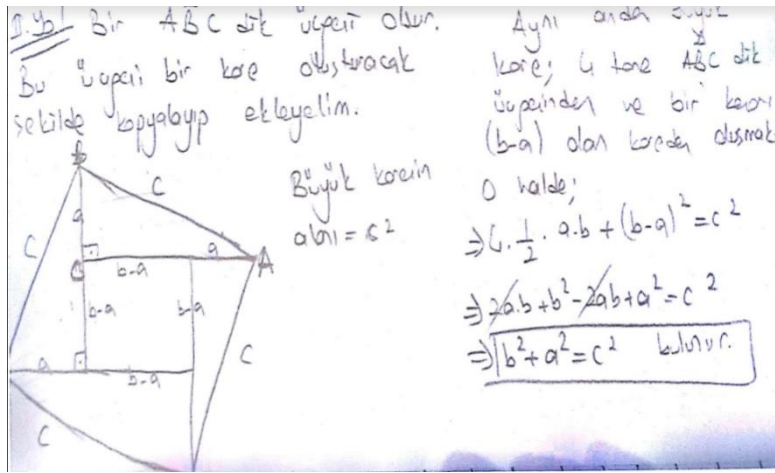 II.Yol Bir ABC dik üçgeni olsun.
Bu üçgeni bir kare oluşturacak
şekilde kopyalayıp ekleyelim.
B
C
a
C
C
b-a
a
A
b-a
b-a
a
b-a
C
C
Büyük karenin
alanı = c²
Aynı anda büyük
kare; 4 tane ABC dik
üçgeninden ve bir kenarı
(b-a) olan kareden oluşmak
O halde;
⇒ 4. 1/2 . a.b + (b-a)² = c²
⇒ 2a.b + b² - 2ab + a² = c²
⇒ b² + a² = c² bulunur.